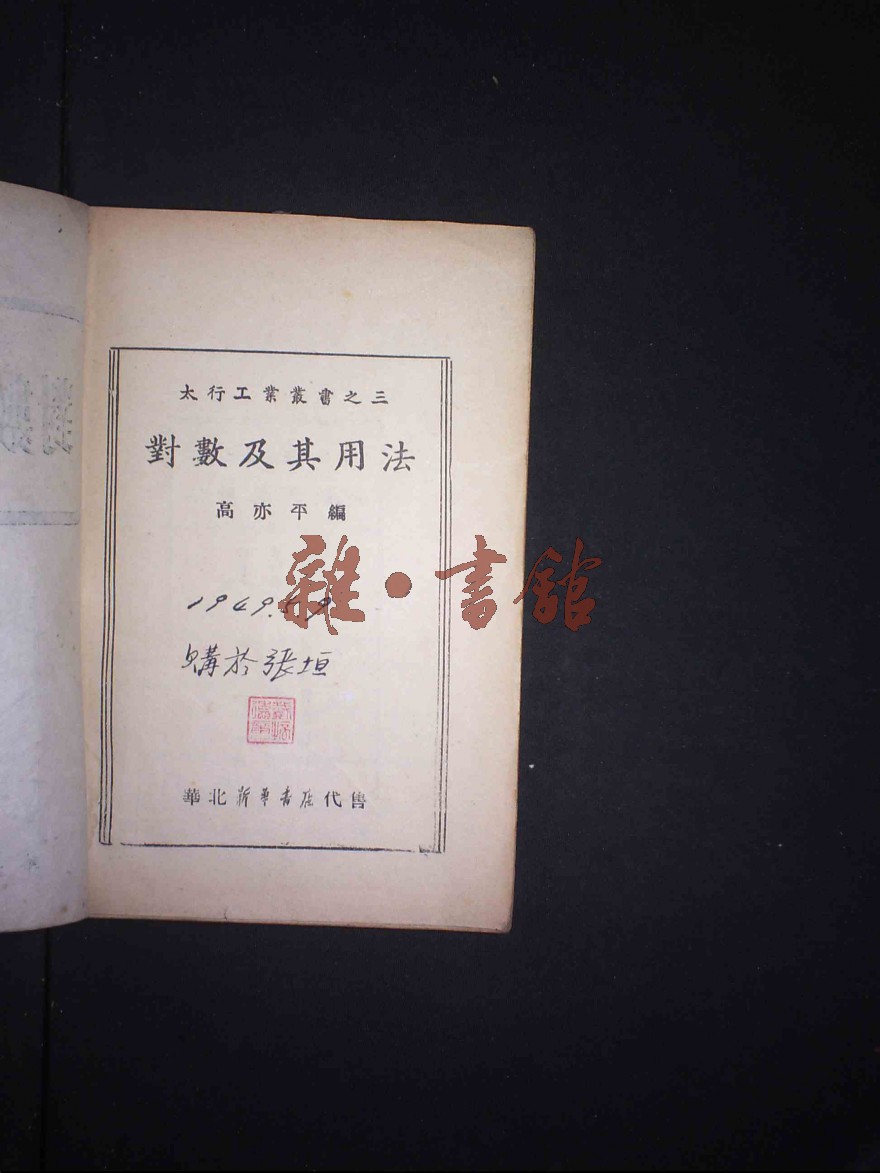 太行工業叢書之三
對數及其用法
高亦平編
雜·書館
1949.5.9
購於張垣
華北新華書店代售